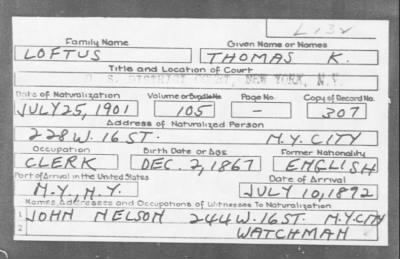 L132
Family Name Given Name or Names
LOFTUS THOMAS K.
Title and Location of Court
U. S. DISTRICT COURT, NEW YORK, N.Y.
Date of Naturalization Volume or Bundle No. Page No. Copy of Record No.
JULY 25, 1901 105 - 307
Address of Naturalized Person
228 W. 16 ST. N.Y. CITY
Occupation Birth Date or Age Former Nationality
CLERK DEC. 2, 1867 ENGLISH
Port of Arrival in the United States Date of Arrival
N.Y., N.Y. JULY 10, 1892
Names, Addresses and Occupations of Witnesses To Naturalization
1 JOHN NELSON 244 W. 16 ST. N.Y. CITY
2 WATCHMAN